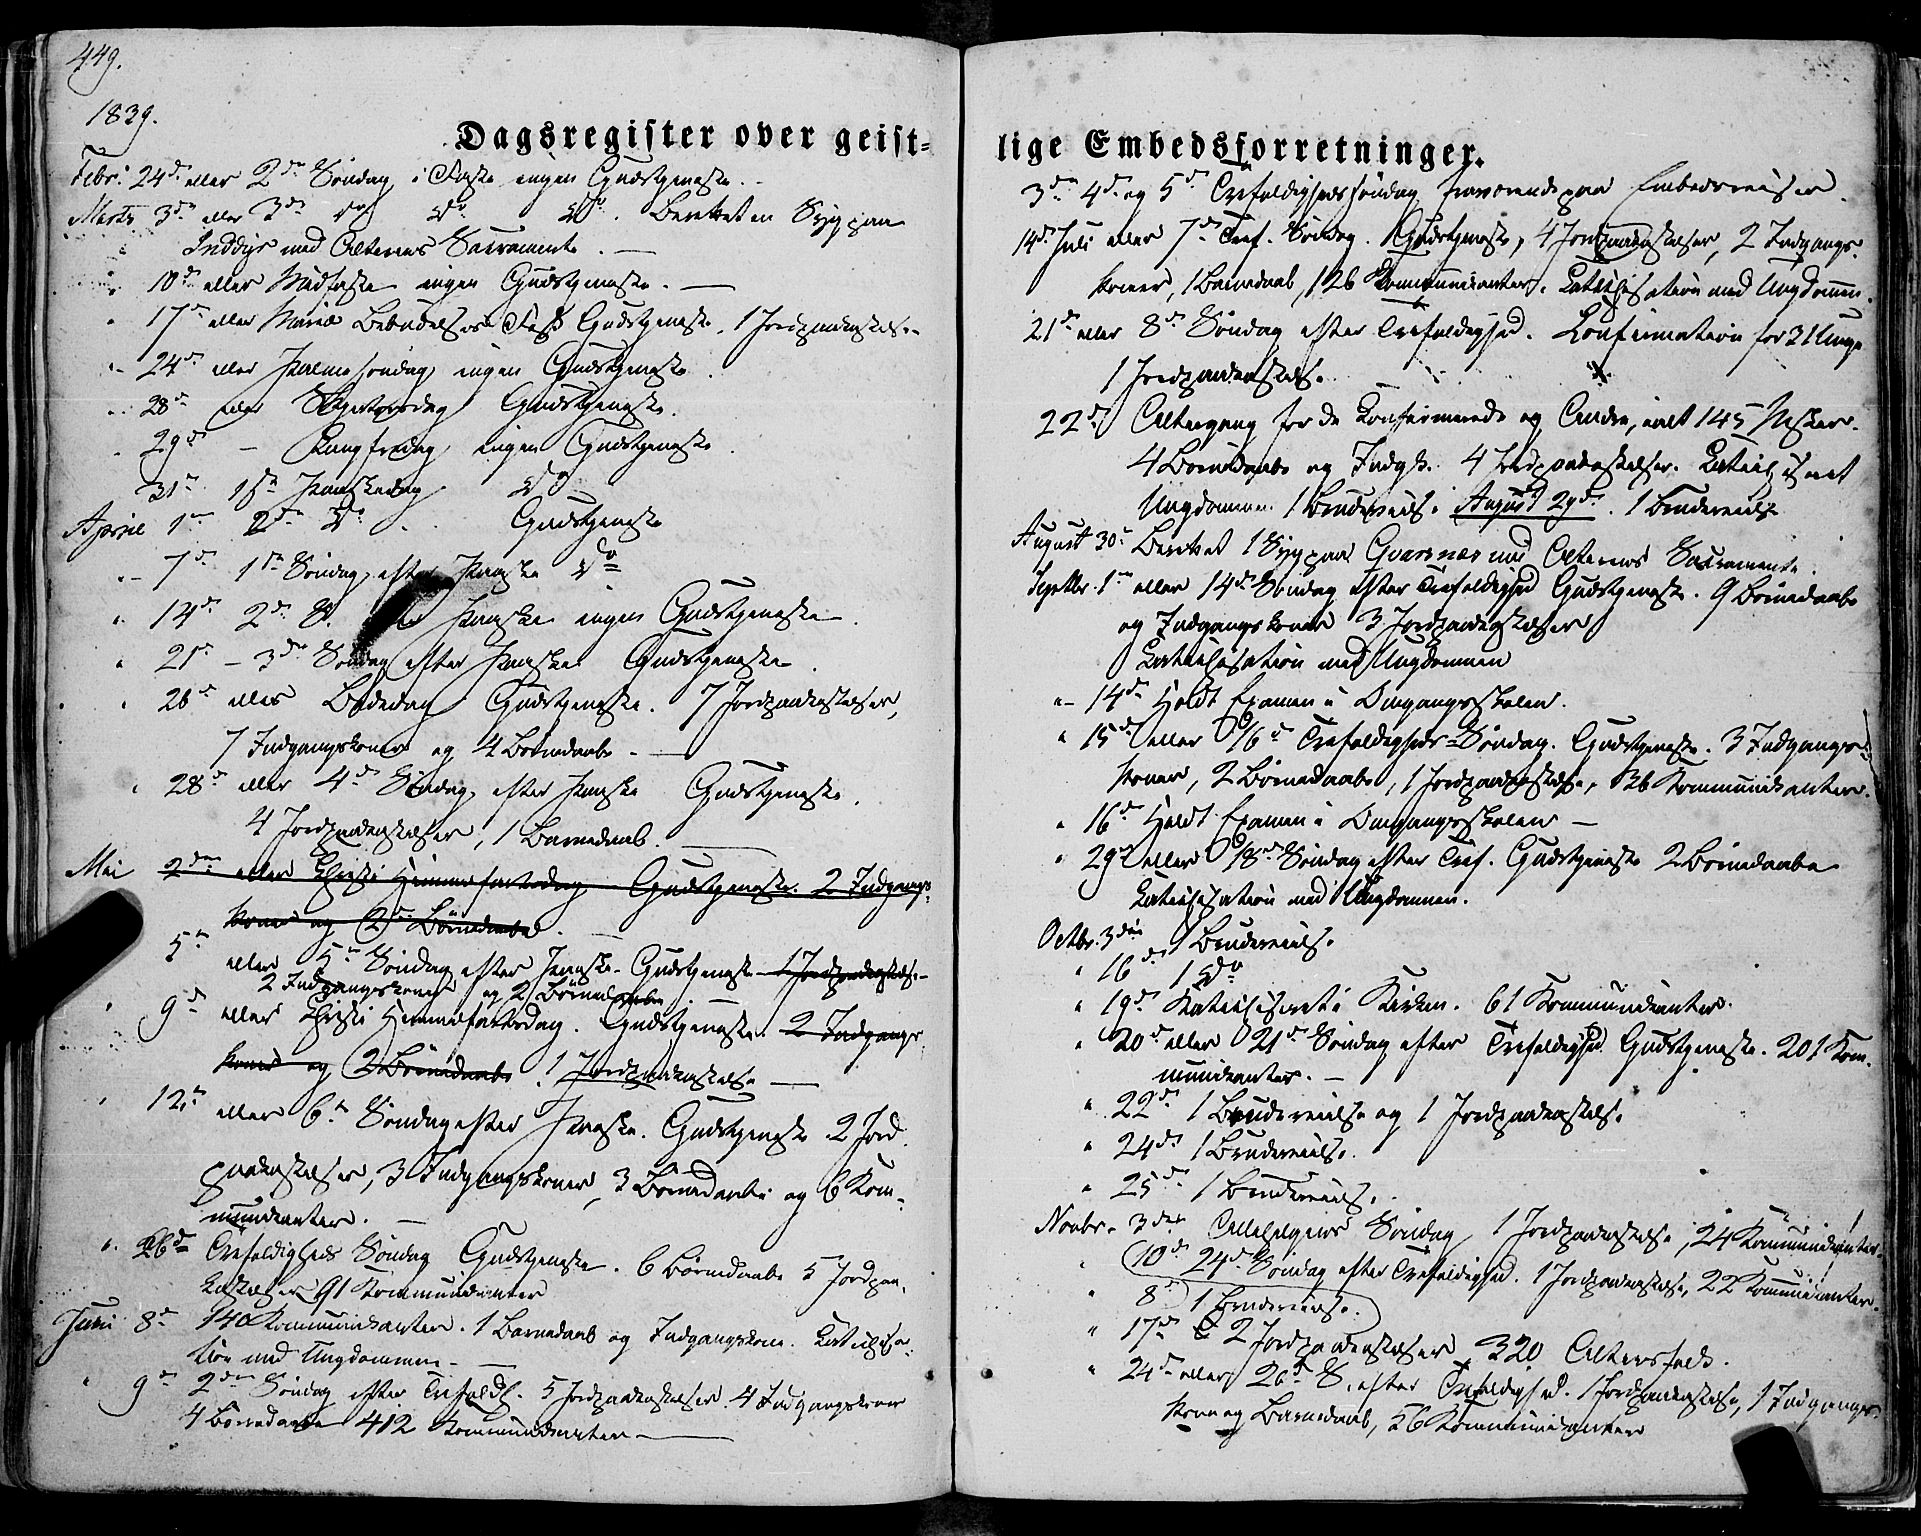 449.
1839.
Dagsregister over geist-
Febr. 24de eller 2den Søndag i Faste ingen Gudstjeneste.
Marts 3de eller 3de do do do. Berettet en Syg paa
Inddyr med Alterens Sacramente.
" 10de eller Midfaste ingen Gudstjeneste.
" 17de eller Mariæ Bebudelses Fest Gudstjeneste. 1 Jordpaakastelse
" 24de eller Palmesøndag ingen Gudstjeneste.
" 28de eller Skjertorsdag Gudstjeneste.
" 29de - Langfredag ingen Gudstjeneste.
31te 1ste Paaskedag do
April 1ste 2den do Gudstjeneste
" 7de 1ste Søndag efter Paaske do
" 14de 2den S. Paaske ingen Gudstjeneste.
" 21de - 3die Søndag efter Paaske Gudstjeneste.
" 26de eller Bededag Gudstjeneste. 7 Jordpaakastelser,
7 Indgangskoner og 4 Børnedaabe.
" 28de eller 4de Søndag efter Paaske Gudstjeneste.
4 Jordpaakastelser, 1 Barnedaab.
Mai 2den eller Christi Himmelfartsdag Gudstjeneste. 2 Indgangs-
koner og 2 Børnedaabe.
5te eller 5te Søndag efter Paaske Gudstjeneste 1 Jordpaakastelse
2 Indgangskoner og 2 Børnedaabe.
" 9de eller Christi Himmelfartsdag. Gudstjeneste. 2 Indgangs-
koner og 2 Børnedaabe. 1 Jordpaakastelse
" 12te eller 6te Søndag efter Paaske. Gudstjeneste 2 Jord-
paakastelser, 3 Indgangskoner, 3 Børnedaabe og 6 Kom-
munikanter.
" 26de Trefoldigheds Søndag Gudstjeneste. 6 Børnedaabe 5 Jordpaa-
kastelser 91 Kommunikanter
Juni 8de 140 Kommunikanter. 1 Barnedaab og Indgangskone. Katechisa-
tion med Ungdommen.
" 9de 2den Søndag efter Trefoldh. 5 Jordpaakastelser. 4 Indgangskoner
4 Børnedaabe 412 Kommunikanter
lige Embedsforretninger.
3die 4de og 5te Trefoldighedssøndag fraværende paa Embedsreiser.
14de Juli eller 7de Tref. Søndag. Gudstjeneste, 4 Jordpaakastelser, 2 Indgangs-
koner, 1 Barnedaab, 126 Kommunikanter. Katechisation med Ungdommen.
21de eller 8de Søndag efter Trefoldighed. Konfirmation for 31 Unge
1 Jordpaakastelse.
22de Altergang for de Konfirmerede og Andre, ialt 145 Nsker.
4 Børnedaabe og Indgk. 4 Jordpaakastelser. Katechiseret
Ungdommen. 1 Brudevielse. August 29de. 1 Brudevielse
August 30te Berettet 1 Syg paa Qvarnnæs med Alterens Sacramente.
Septbr. 1ste eller 14de Søndag efter Trefoldighed Gudstjeneste. 9 Børnedaabe
og Indgangskoner 3 Jordpaakastelser
Katechisation med Ungdommen
" 14de Holdt Examen i Omgangsskolen.
" 15de eller 16de Trefoldigheds-Søndag. Gudstjeneste. 3 Indgangs-
koner, 2 Børnedaabe, 1 Jordpaakastelse, 36 Kommunikanter.
" 16de Holdt Examen i Omgangsskolen
" 29de eller 18de Søndag efter Tref. Gudstjeneste 2 Børnedaabe
Katechisation med Ungdommen.
Octbr. 3die 1 Brudevielse.
" 16de 1 do
" 19de Katechiseret i Kirken. 61 Kommunikanter.
" 20de eller 21de Søndag efter Trefoldighed Gudstjeneste. 201 Kom-
munikanter.
" 22de 1 Brudevielse og 1 Jordpaakastelse.
" 24de 1 Brudevielse.
" 25de 1 Brudevielse.
Novbr. 3die Allehelgens Søndag 1 Jordpaakastelse, 24 Kommunikanter.
" 10de 24de Søndag efter Trefoldighed. 1 Jordpaakastelse, 22 Kommunikanter.
" 8de 1 Brudevielse.
" 17de 2 Jordpaakastelser 320 Altersfolk.
" 24de eller 26de S. efter Trefoldighed. 1 Jordpaakastelse, 1 Indgangs-
kone og Barnedaab, 56 Kommunikanter